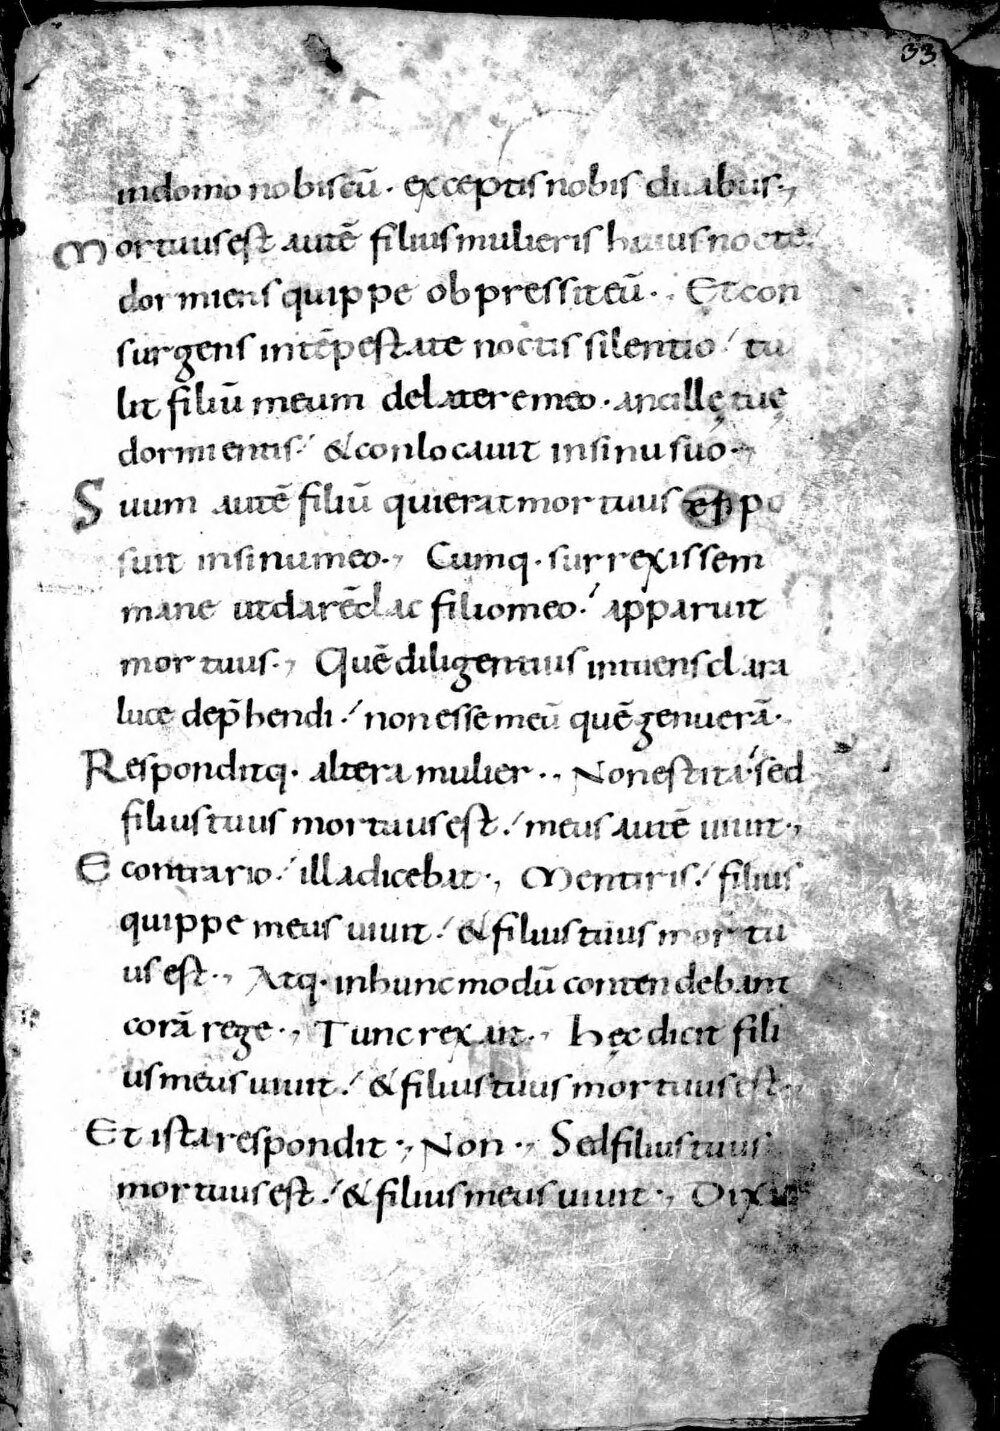 33
indomo nobiscū · exceptis nobis duabus·,
Mortuus est autē filius mulieris huius nocte·
dormiens quippe obpressit eū·, Et con
surgens intēpestate noctis silentio·/ tu
lit filiū meum de latere meo · ancillę tuę
dormientis·/ & conlocauit insinu suo·,
Suum autē filiū qui erat mortuus po
suit insinu meo·, Cumq· surrexissem
mane ut darē lac filio meo·/ apparuit
mortuus·, Quē diligentius intuens clara
luce dep̄hendi·/ non esse meū quē genuerā·
Responditq· altera mulier·, Non est ita·/ sed
filius tuus mortuus est·/ meus autē uiuit·,
E contrario·/ illa dicebat·, Mentiris·/ filius
quippe meus uiuit·/ & filius tuus mortu
us est·, Atq· inhunc modū contendebant
corā rege·, Tunc rex ait·, Hęc dicit fili
us meus uiuit·/ & filius tuus mortuus est·,
Et ista respondit·, Non·, Sed filius tuus
mortuus est·/ & filius meus uiuit·, Dixit